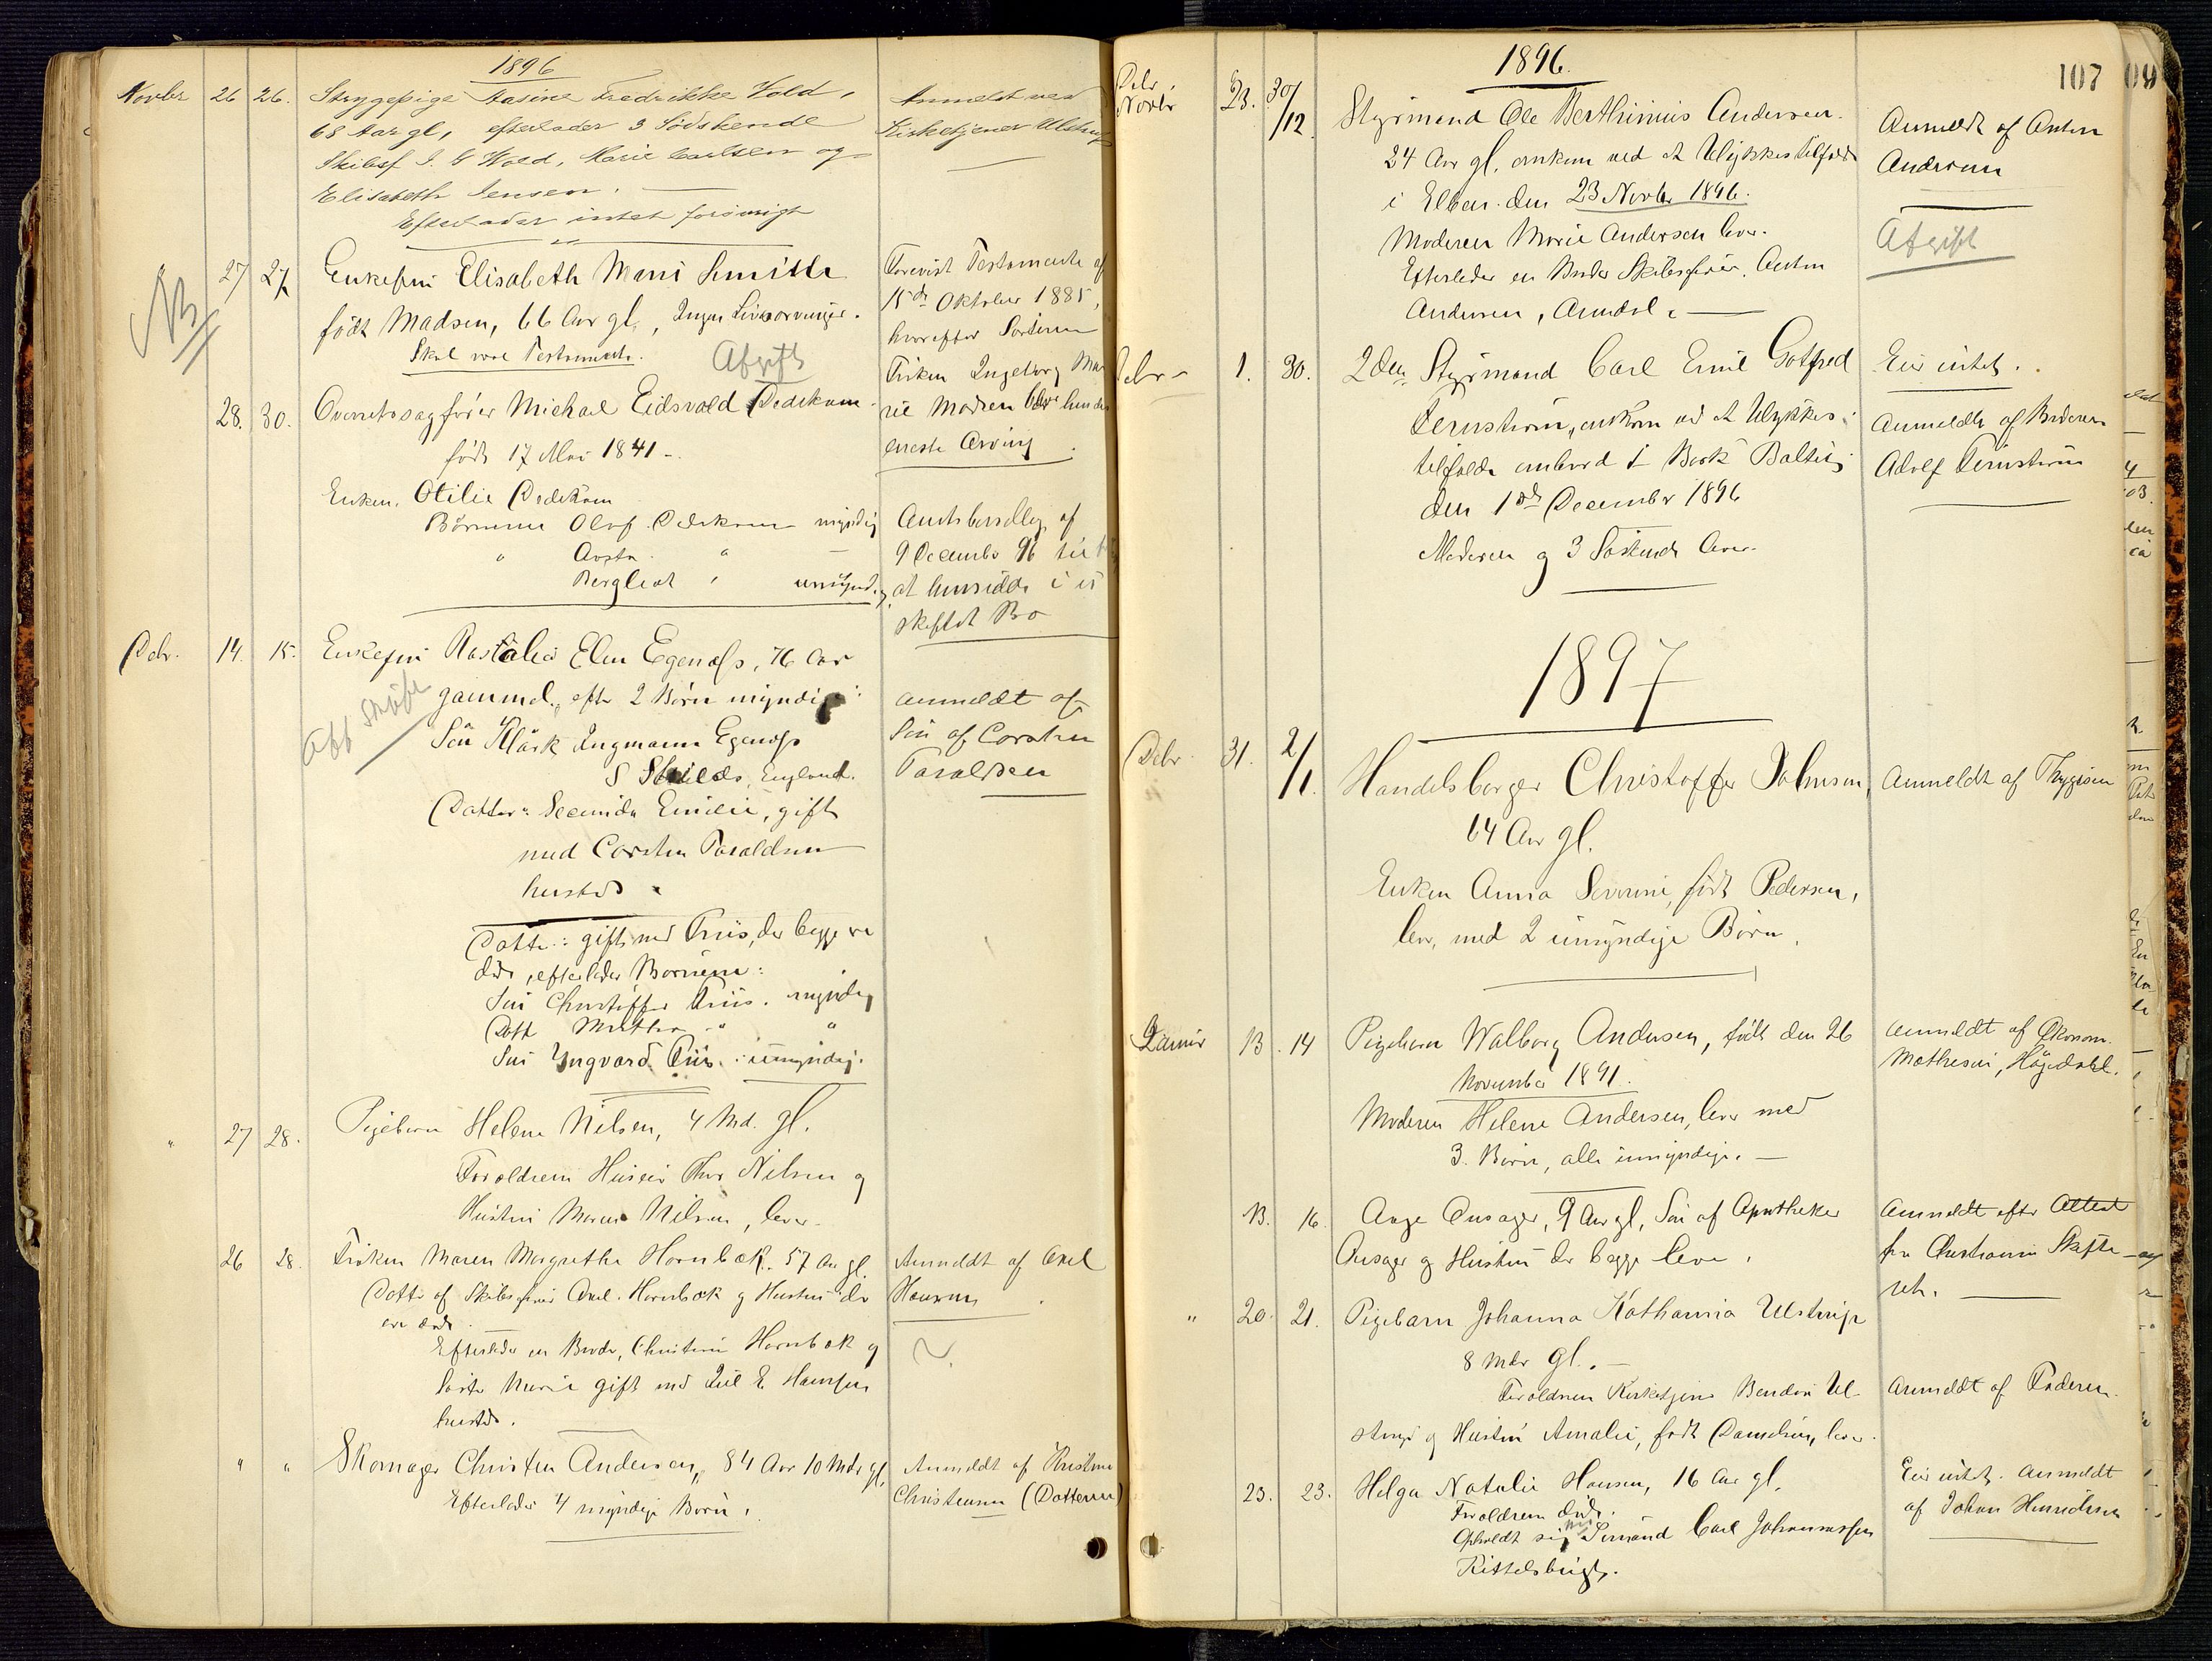 1896
Novbr 26 26. Strygepige Aasine Fredrikke Vold,
68 Aar gl, efterlader 3 Sødskende
Skibsf I. G Wold, Marie Carlsen og
Elisabeth Jensen.
Efterlader intet forøvrigt
Anmeldt ved
Kirketjener Ulstrup
NB
27 27/ Enkefru Elisabeth Marie Smith
født Madsen, 66 Aar gl, Ingen Livsarvinger.
Skal være Testamente.
Afgift
Forevist Testamente af
15de Oktober 1885,
hvorefter Søsteren
Frøken Ingeborg Ma
rie Madsen blev hendes
eneste Arving
28. 30. Overretssagfører Michael Eidsvold Dedekam
født 17 Mai 1841
Enken, Otilie Dedekam
Børnene Olaf Dedekam myndig
" Aasta " —
Bergliot " umyndig
Amtsbevillg af
9 December 96 til
at hensidde i u
skiftet Bo
Debr. 14. 15. Enkefru Rosalia Elen Egenæs, 76 Aar
gammel, eft 2 Børn myndige:
Søn Klärk Ingmann Egenæs
S Shields, England.
Datter: Secunda Emilie, gift
med Carsten Taraldsen
hersteds
Datter: gift med Friis, der begge ere
døde, efterlader Børnene:
Søn Christoffer Friis. myndig
Datt Martha " "
Søn Yngvard Friis. umyndig.
anmeldt af
Søn af Carsten
Taraldsen
" 27 28. Pigebarn Helene Nilsen, 4 Md. gl.
Forældrene Huseier Thor Nilsen og
Hustru Maren Nilsen, lever.
26 28. Frøken Maren Margrethe Hornbæk. 57 Aar gl.
Datter af Skibsfører Axel Hornbæk og Hustru der
ere døde.
Efterlader en Broder, Christian Hornbæk og
Søster Marie gift med Axel E. Hansen
hersteds.
Anmeldt af Axel
Hansen
" " Skomager Christen Andersen, 84 Aar 10 Mdr gl,
Efterlader 4 myndige Børn.
Anmeldt af Kristine
Christensen (Datteren)
1896.
107
Debr
Novbr 23. 30/12. Styrmand Ole Berthinius Andersen.
24 Aar gl. omkom ved et Ulykkestilfælde
i Elben den 23 Novbr 1896.
Moderen Marie Andersen lever.
Efterlader en Broder Skibsfører Anton
Andersen, Arendal.
Anmeldt af Anton
Andersen
Afgift
Debr 1. 30. 2den Styrmand Carl Emil Gotfred
Fernstrøm, omkom ved et Ulykkes-
tilfælde ombord i Bark Baltic
den 1ste December 1896
Moderen og 3 Søskende lever.
Eier intet.
Anmeldt af Broderen
Adolf Fernstrøm
1897
Debr 31. 2/1. Handelsborger Christoffer Johnsen,
64 Aar gl.
Enken Anna Severine, født Pedersen,
lever, med 2 umyndige Børn.
Anmeldt af Thygesen
Januar 13. 14 Pigebarn Walborg Andersen, født den 26
November 1891.
Moderen Helene Andersen, lever med
3. Børn, alle umyndige.
Anmeldt af Økonom.
Mathesen, Høgedahl.
13. 16. Aage Ansager, 9 Aar gl, Søn af Apotheker
Ansager og Hustru der begge leve.
Anmeldt efter Attest
fra Christiania Skifte-
ret.
" 20. 21. Pigebarn Johanna Kathania Ulstrup
8 Mdr gl.
Forældrene Kirketjener Bendix Ul-
strup og Hustru Amalie, født Danielsen, lever.
Anmeldt af Faderen.
23. 23. Helga Natalie Hansen, 16 Aar gl.
Forældrene døde.
Opholdt sig hos Sømand Carl Johannessen
Kittelsbugt.
Eier intet. Anmeldt
af Johan Henriksen